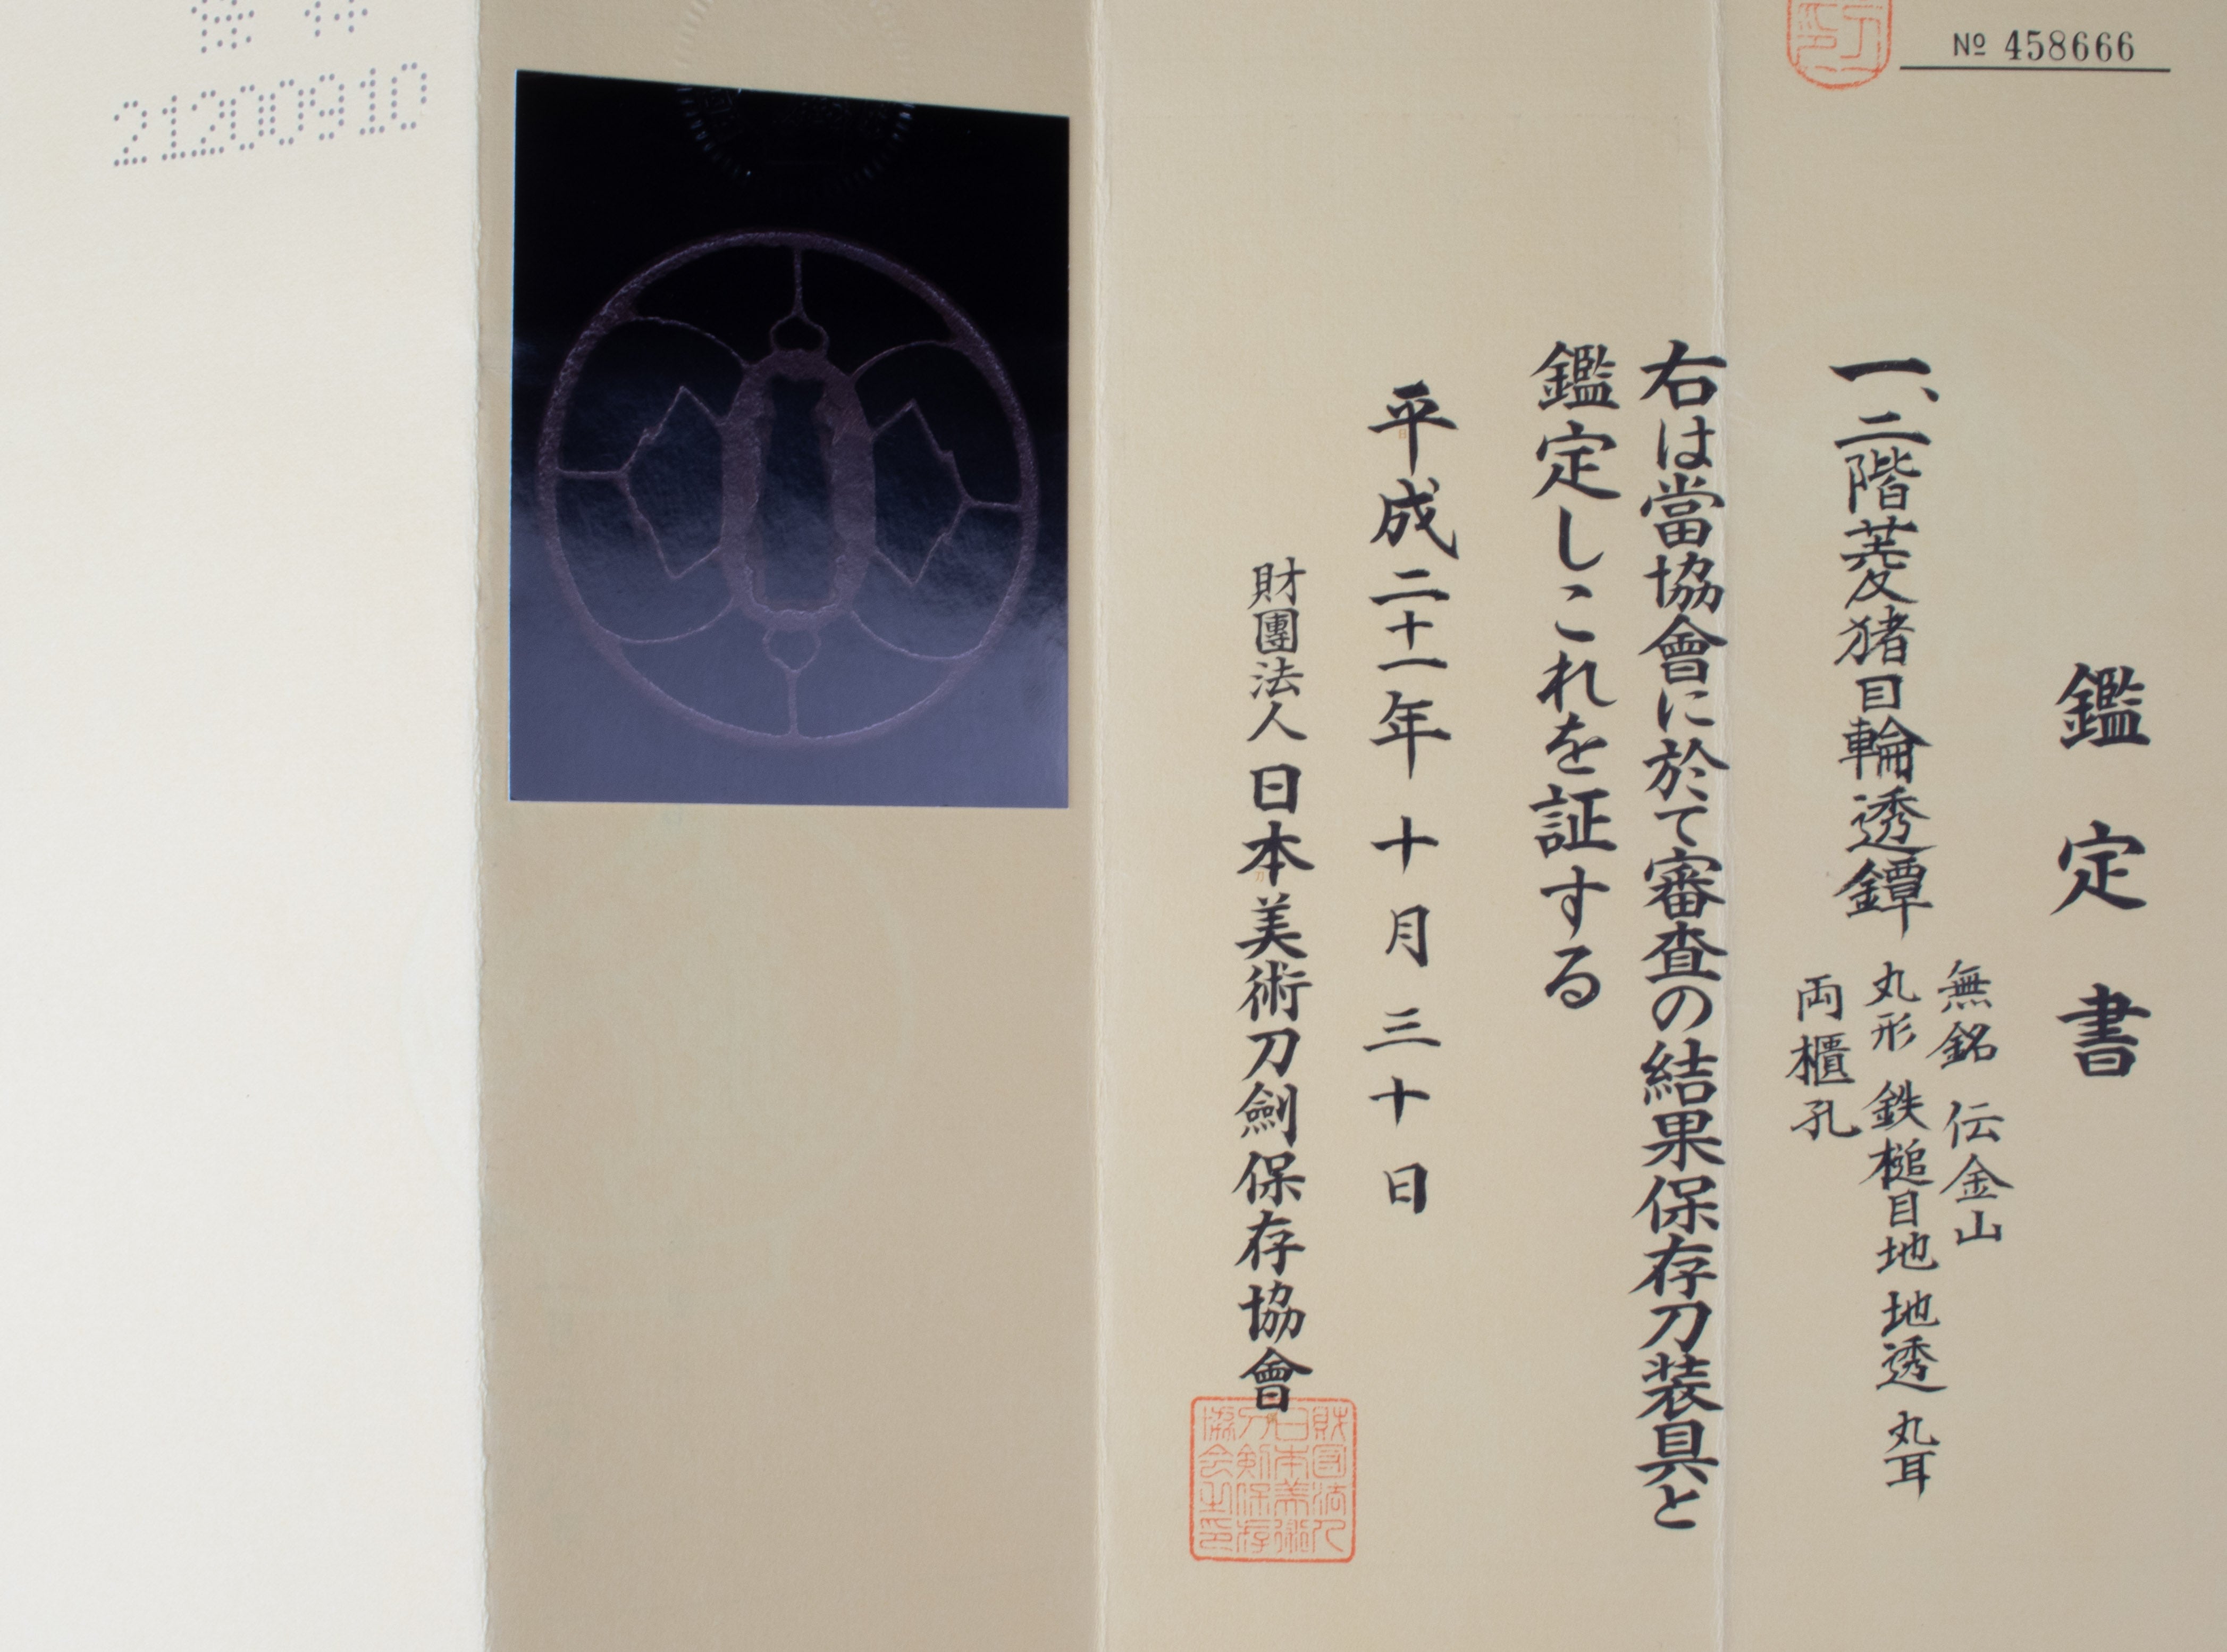 № 458666
鑑定書
一、二階菱猪目輪透鐔
無銘 伝金山
丸形 鉄槌目地 地透 丸耳
両櫃孔
右は當協會に於て審査の結果保存刀装具と
鑑定しこれを証する
平成二十一年十月三十日
財團法人日本美術刀劍保存協會
財団法人
日本美術
刀剣保存
協会之印
21200910